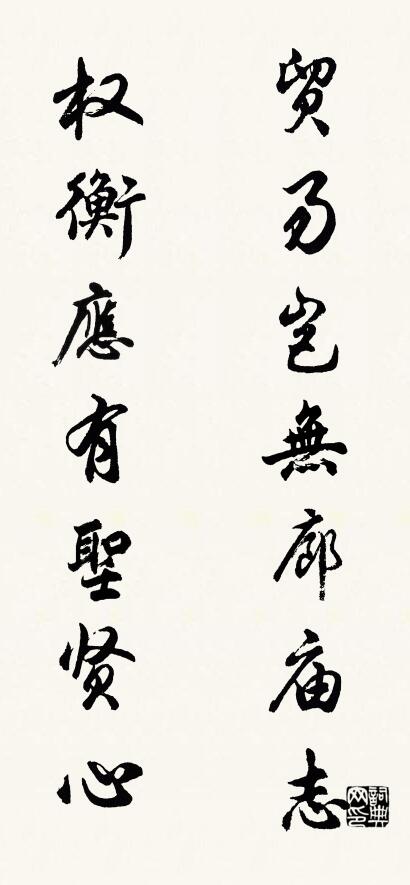 贸易岂無廊庙志
权衡應有聖贤心
詞典网印